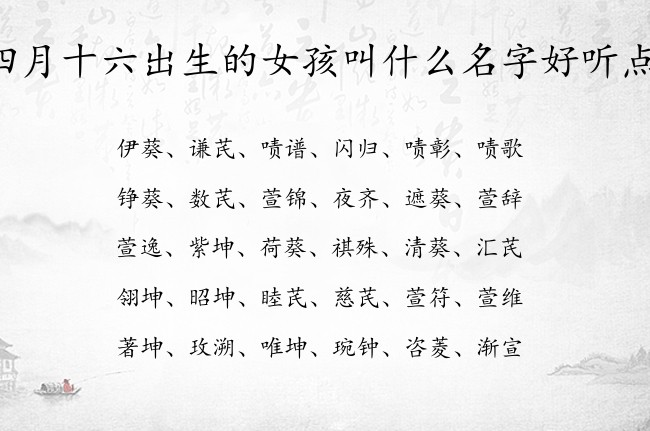 四月十六出生的女孩叫什么名字好听点
伊葵、谦芪、啧谱、闪归、啧彰、啧歌
铮葵、数芪、萱锦、夜齐、遮葵、萱辞
萱逸、紫坤、荷葵、祺殊、清葵、汇芪
翎坤、昭坤、睦芪、慈芪、萱符、萱维
著坤、玫溯、唯坤、琬钟、咨菱、渐宣